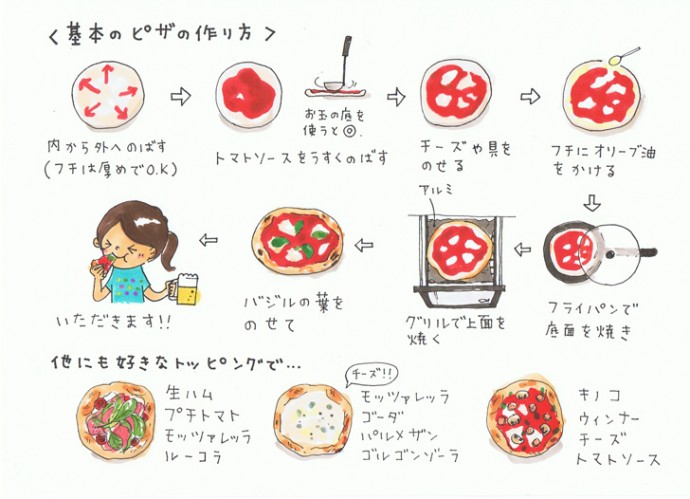 〈基本のピザの作り方〉
内から外へのばす
(フチは厚めでO.K)
トマトソースをうすくのばす
お玉の底を
使うと◎.
チーズや具を
のせる
フチにオリーブ油
をかける
フライパンで
底面を焼き
アルミ
グリルで上面を
焼く
バジルの葉を
のせて
いただきます!!
他にも好きなトッピングで…
生ハム
プチトマト
モッツァレッラ
ルーコラ
チーズ!!
モッツァレッラ
ゴーダ
パルメザン
ゴルゴンゾーラ
キノコ
ウィンナー
チーズ
トマトソース